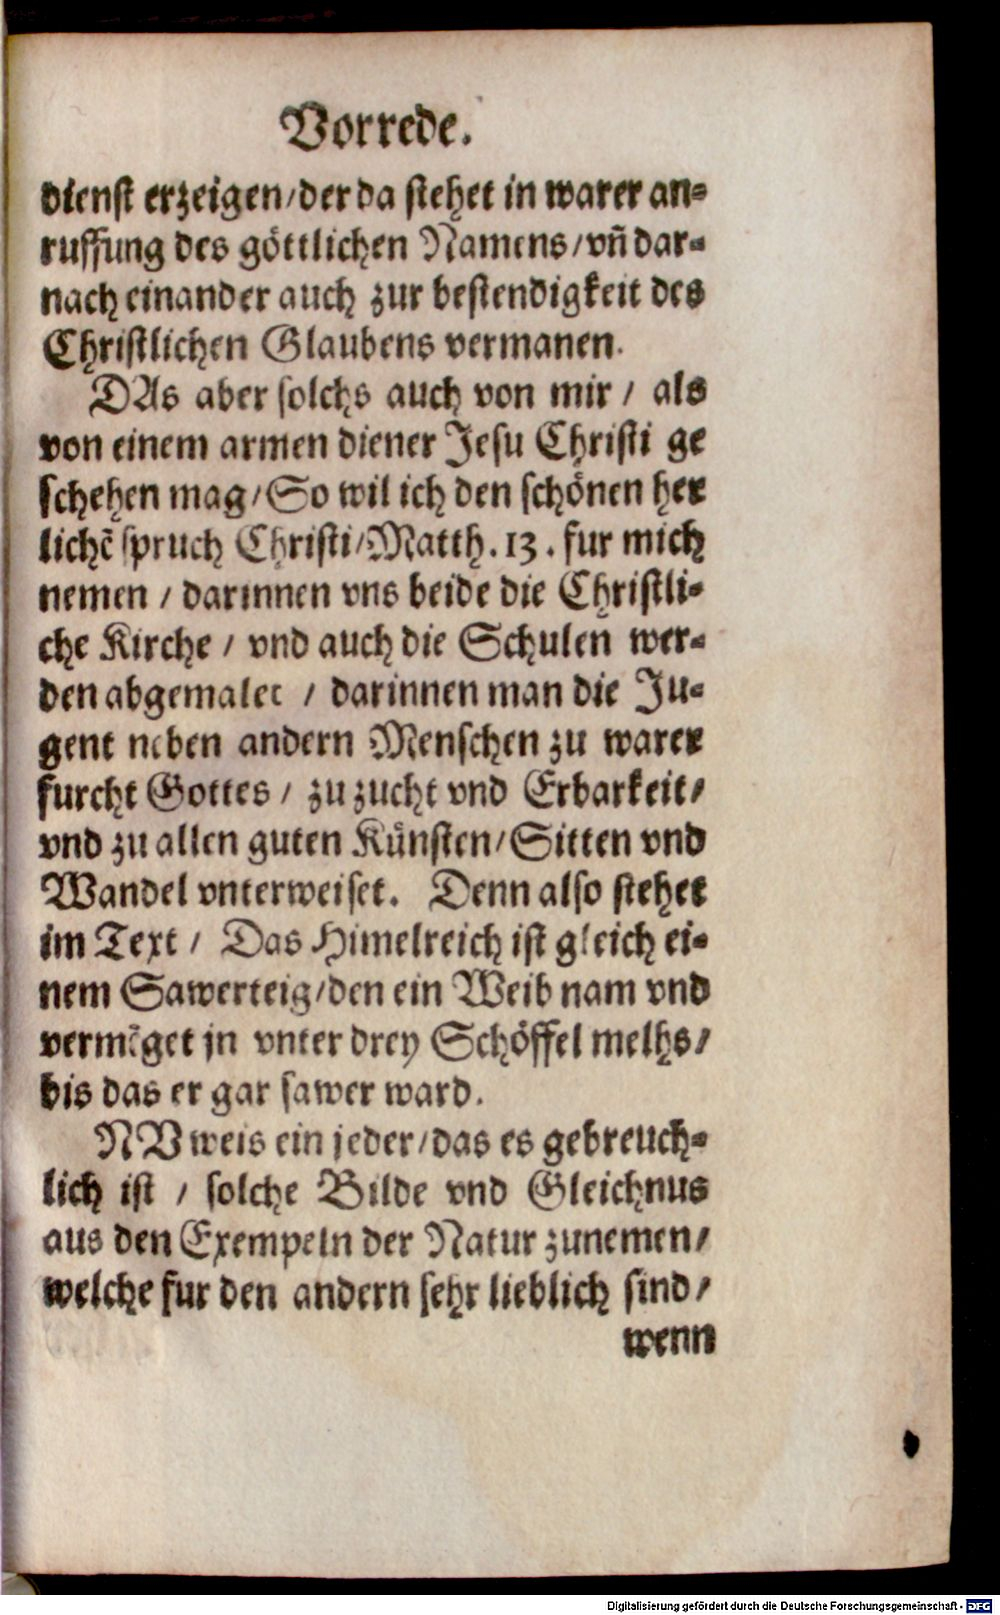 Vorrede.
dienst erzeigen/der da stehet in warer an=
ruffung des göttlichen Namens/vñ dar=
nach einander auch zur bestendigkeit des
Christlichen Glaubens vermanen.
DAs aber solchs auch von mir / als
von einem armen diener Jesu Christi ge
schehen mag/So wil ich den schönen her
lichẽ spruch Christi/Matth.13. fur mich
nemen / darinnen vns beide die Christli=
che Kirche / vnd auch die Schulen wer=
den abgemalet / darinnen man die Ju=
gent neben andern Menschen zu warer
furcht Gottes / zu zucht vnd Erbarkeit/
vnd zu allen guten Künsten/Sitten vnd
Wandel vnterweiset. Denn also stehet
im Text / Das Himelreich ist gleich ei=
nem Sawerteig/den ein Weib nam vnd
vermẽget jn vnter drey Schöffel melhs/
bis das er gar sawer ward.
NV weis ein jeder/das es gebreuch=
lich ist / solche Bilde vnd Gleichnus
aus den Exempeln der Natur zunemen/
welche fur den andern sehr lieblich sind/
wenn
Digitalisierung gefördert durch die Deutsche Forschungsgemeinschaft - DFG